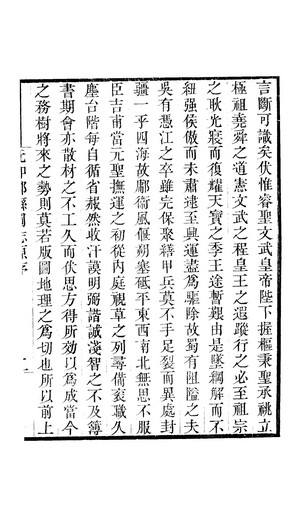 言斷可識矣伏惟睿聖文武皇帝陛下握樞秉聖承祧立
極祖堯舜之道憲文武之程皇王之遐蹤行之必至祖宗
之耿光寢而復耀天寶之季王途暫艱由是墜綱解而不
紐強侯傲而未肅逮至興運盡爲驅除故蜀有阻隘之夫
吳有憑江之卒雖完保聚繕甲兵莫不手足裂而異處封
疆一乎四海故鄘衞風偃朔塞砥平東西南北無思不服
臣吉甫當元聖撫運之初從内庭視草之列尋備衮職久
塵台階每自循省赧然收汗謨明弼諧誠淺智之不及簿
書期會亦散材之不工久而伏思方得所効以爲成當今
之務樹將來之勢則莫若版圖地理之爲切也所以前上
元和郡縣圖志原序
二